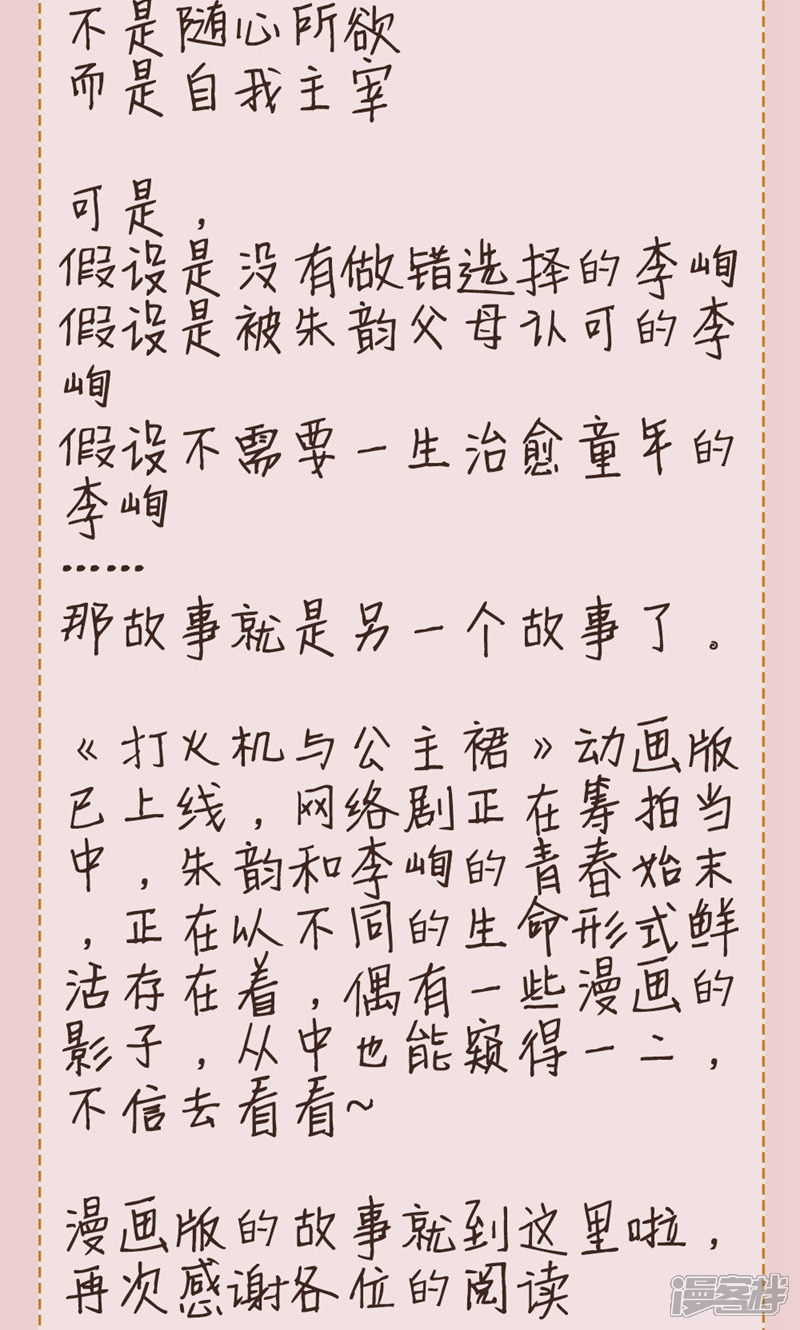 不是随心所欲
而是自我主宰
可是，
假设是没有做错选择的李峋
假设是被朱韵父母认可的李
峋
假设不需要一生治愈童年的
李峋
……
那故事就是另一个故事了。
《打火机与公主裙》动画版
已上线，网络剧正在筹拍当
中，朱韵和李峋的青春始末
，正在以不同的生命形式鲜
活存在着，偶有一些漫画的
影子，从中也能窥得一二，
不信去看看~
漫画版的故事就到这里啦，
再次感谢各位的阅读
漫客栈